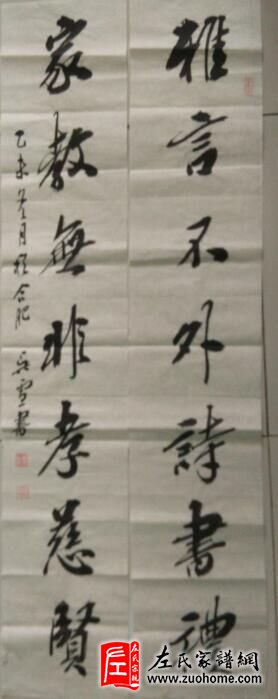 雅言不外詩書禮
家教無非孝慈賢
乙未冬月於合肥 吳雪書
左氏家譜網
www.zuohome.com